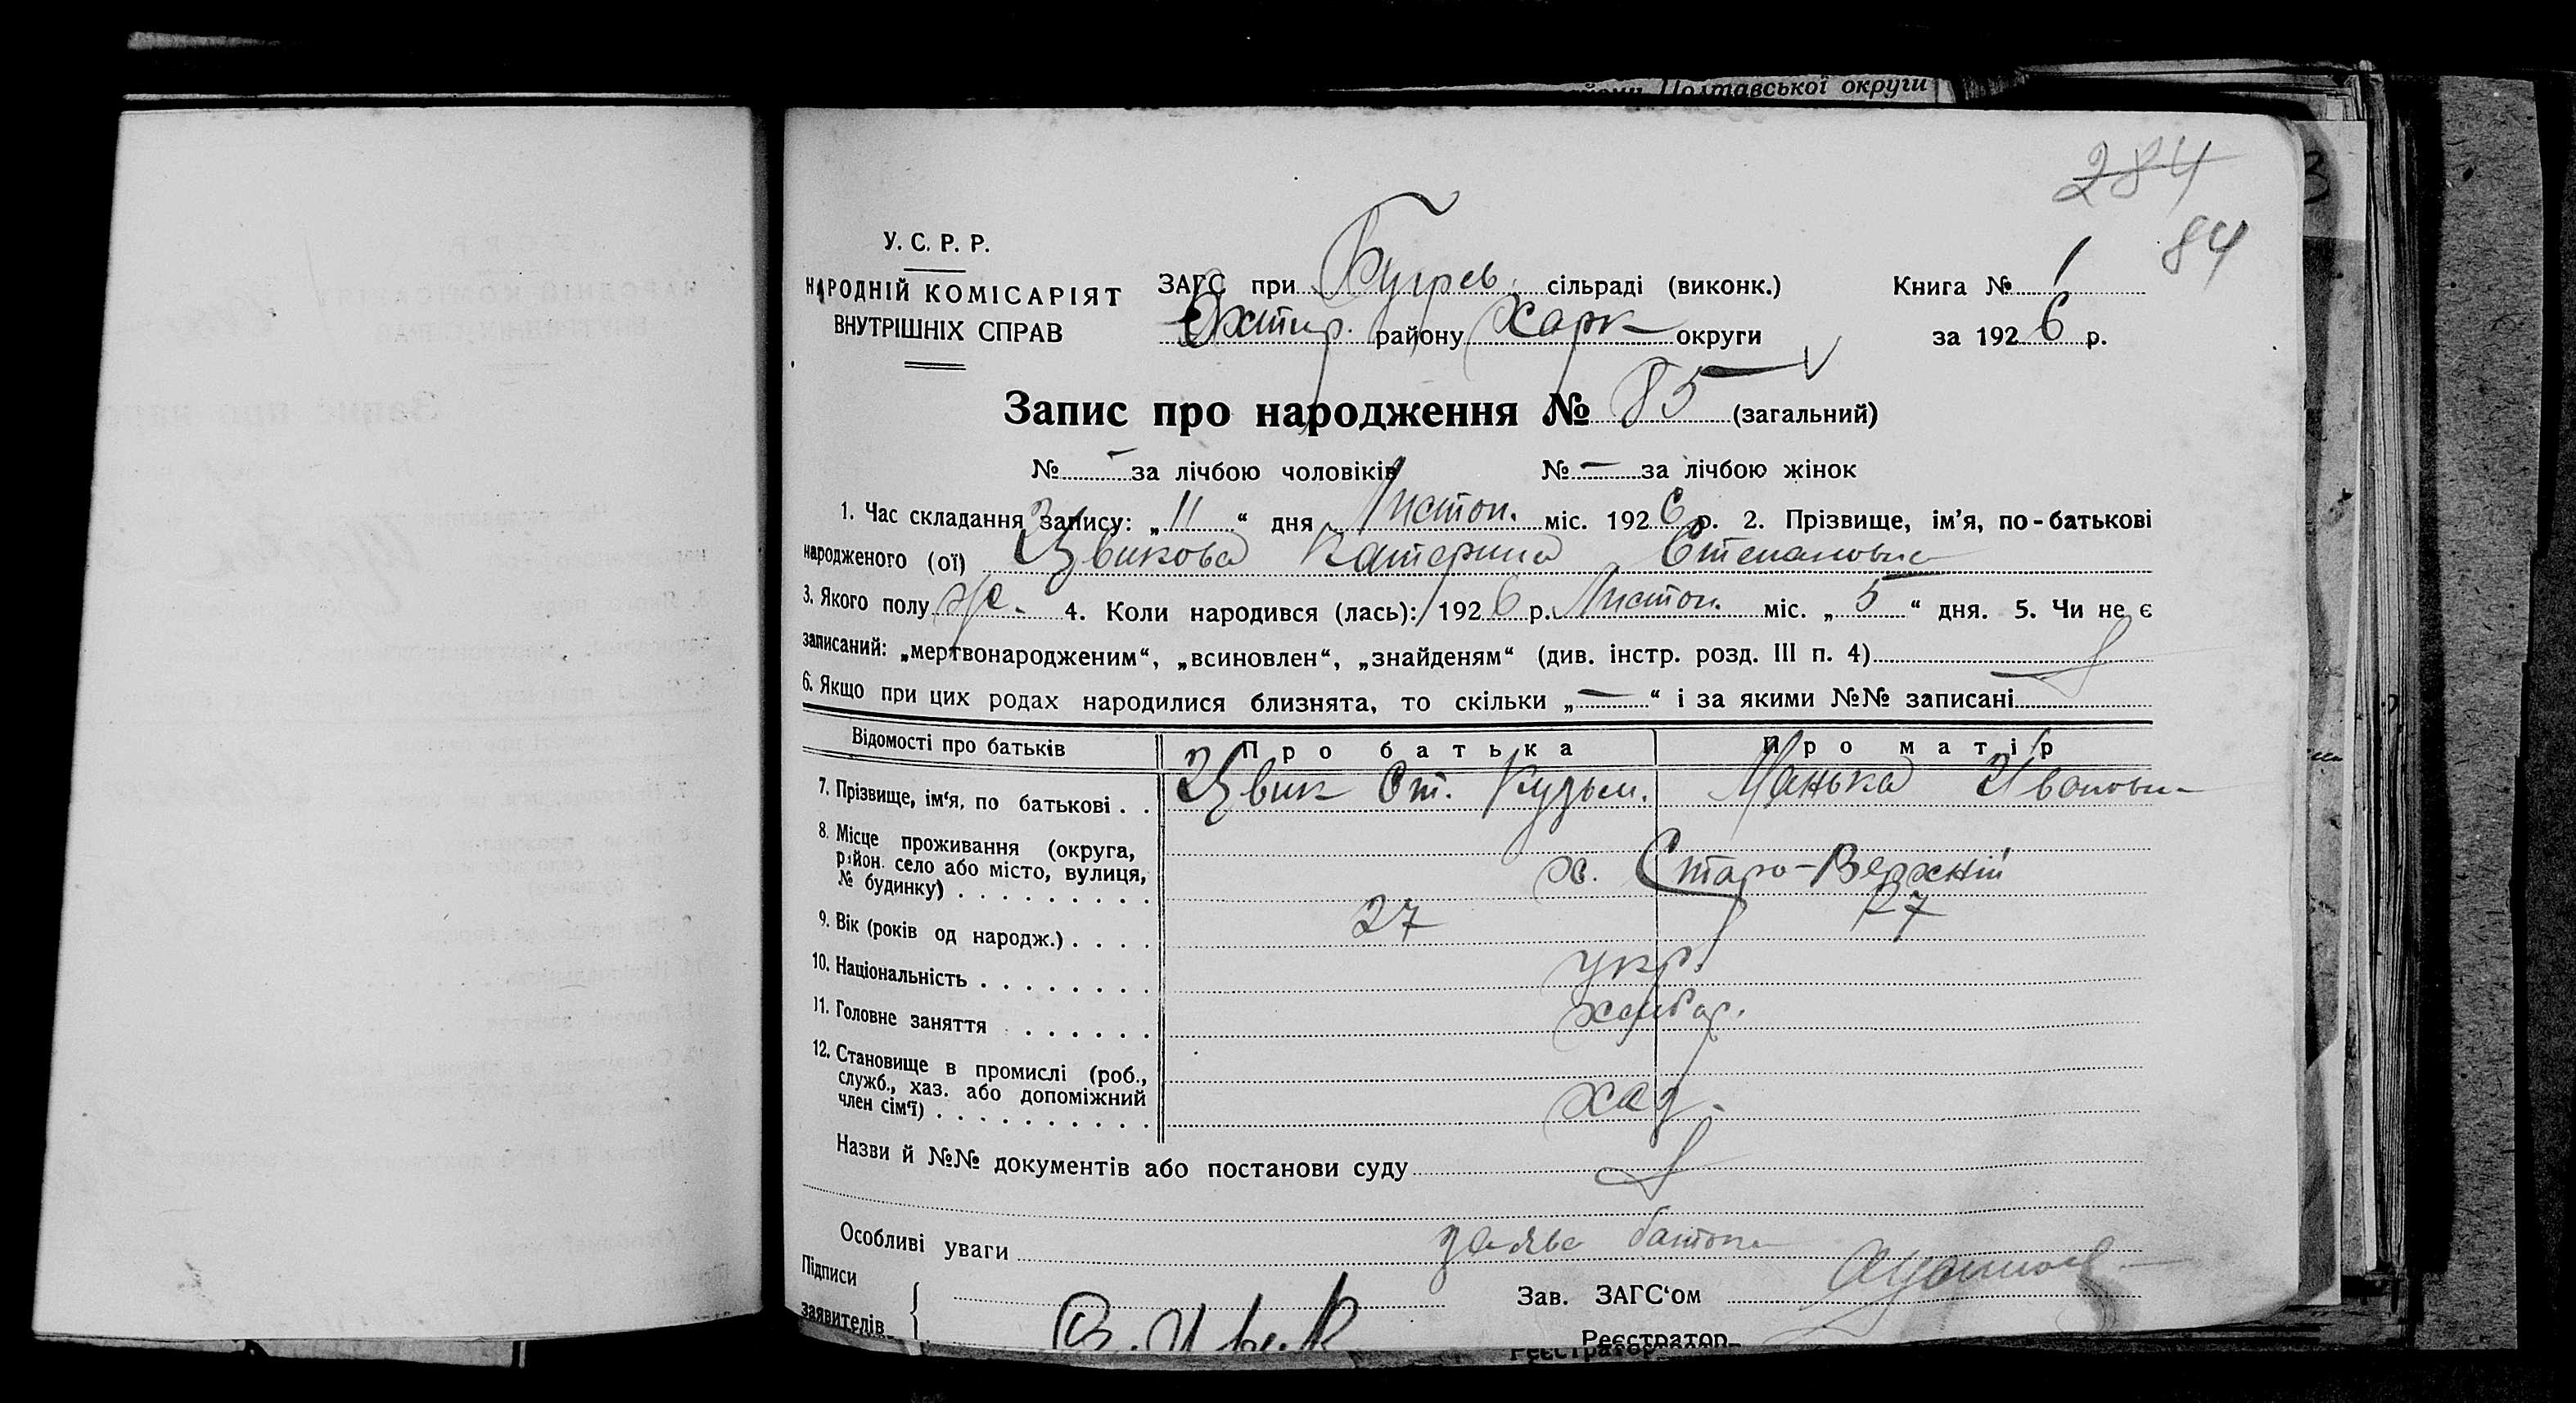 Полтавської округи
284
84
У. С. Р. Р.
НАРОДНІЙ КОМІСАРІЯТ
ВНУТРІШНІХ СПРАВ
ЗАГС при Бугрев. сільраді (виконк.)
Книга № 1
Охтир. району Харк округи
за 1926 р.
Запис про народження № 85 (загальний)
№ – за лічбою чоловіків № – за лічбою жінок
1. Час складання запису: „11“ дня Листоп. міс. 1926 р. 2. Прізвище, ім’я, по-батькові
народженого (ої) Цвикова Катерина Степановна
3. Якого полу ж. 4. Коли народився (лась): 1926 р. Листоп. міс. „5“ дня. 5. Чи не є
записаний: „мертвонародженим“, „всиновлен“, „знайденям“ (див. інстр. розд. III п. 4)
6. Якщо при цих родах народилися близнята, то скільки „—“ і за якими №№ записані
Відомості про батьків Про батька Про матір
7. Прізвище, ім‘я, по батькові . . Цвик Ст. Кузьм. Манька Ивановн
8. Місце проживання (округа,
район. село або місто, вулиця,
№ будинку) . . . . . . . . . х. Старо-Верхній
9. Вік (років од народж.) . . . . 27 27
10. Національність . . . . . . . . укр.
11. Головне заняття . . . . . . хлібор.
12. Становище в промислі (роб.,
служб., хаз. або допоміжний
член сім‘ї) . . . . . . . . . . хаз.
Назви й №№ документів або постанови суду
Особливі уваги заява батька
Підписи
заявителів
С. Цвик
Зав. ЗАГС‘ом
Реєстратор